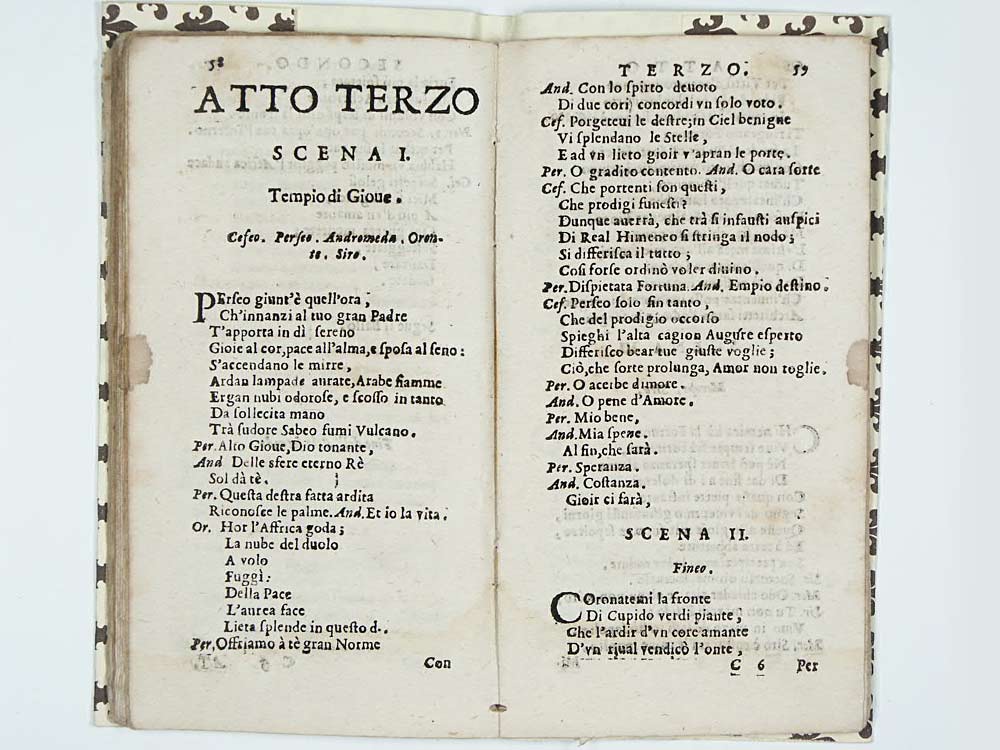 58
ATTO TERZO
SCENA I.
Tempio di Gioue.
Cefeo. Perseo. Andromeda. Oron-
te. Siro.
PErseo giunt'è quell'ora,
Ch'innanzi al tuo gran Padre
T'apporta in dì sereno
Gioie al cor, pace all'alma, e sposa al seno:
S'accendano le mirre,
Ardan lampade aurate, Arabe fiamme
Ergan nubi odorose, e scosso in tanto
Da sollecita mano
Trà sudore Sabeo fumi Vulcano.
Per. Alto Gioue, Dio tonante,
And Delle sfere eterno Rè
Sol dà tè.
Per. Questa destra fatta ardita
Riconosce le palme. And. Et io la vita.
Or. Hor l'Affrica goda;
La nube del duolo
A volo
Fuggì:
Della Pace
L'aurea face
Lieta splende in questo d.
Per, Offriamo à tè gran Norme
Con
TERZO. 59
And. Con lo spirto deuoto
Di due cori concordi vn solo voto.
Cef. Porgeteui le destre; in Ciel benigne
Vi splendano le Stelle,
E ad vn lieto gioir v'apran le porte.
Per. O gradito contento. And. O cara sorte
Cef. Che portenti son questi,
Che prodigi funesti?
Dunque auerrà, che trà sì infausti auspici
Di Real Himeneo si stringa il nodo;
Si differisca il tutto;
Così forse ordinò voler diuino.
Per. Dispietata Fortuna. And. Empio destino.
Cef. Perseo solo fin tanto,
Che del prodigio occorso
Spieghi l'alta cagion Auguste esperto
Differisco bear tue giuste voglie;
Ciò, che sorte prolunga, Amor non toglie.
Per. O acerbe dimore.
And. O pene d'Amore.
Per. Mio bene,
And. Mia spene.
Al fin, che sarà.
Per. Speranza.
And. Costanza.
Gioir ci farà,
SCENA II.
Fineo.
COronatemi la fronte
Di Cupido verdi piante,
Che l'ardir d'vn core amante
D'vn riual vendicò l'onte,
C 6 Per